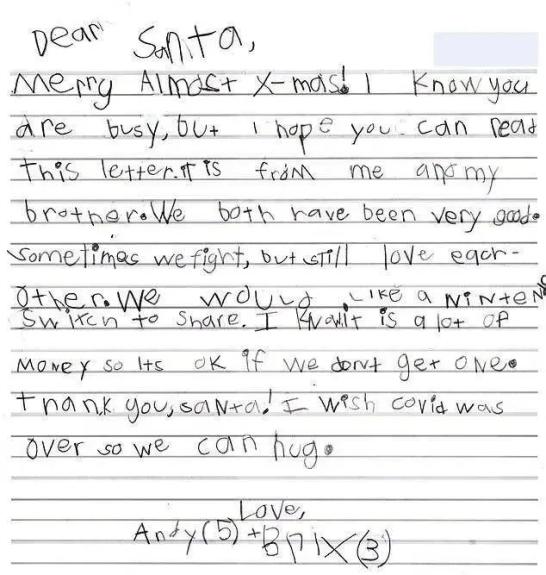 Dear Santa,
Merry Almost X-mas! I Know you
are busy, but I hope you can read
this letter. It is from me and my
brother. We both have been very good.
sometimes we fight, but still love each-
other. We would Like a NiNteNdo
Switch to share. I Know it is a lot of
Money so its OK if we dont get one.
thank you, santa! I wish covid was
over so we can hug.
Love,
Andy (5) + Brix (3)